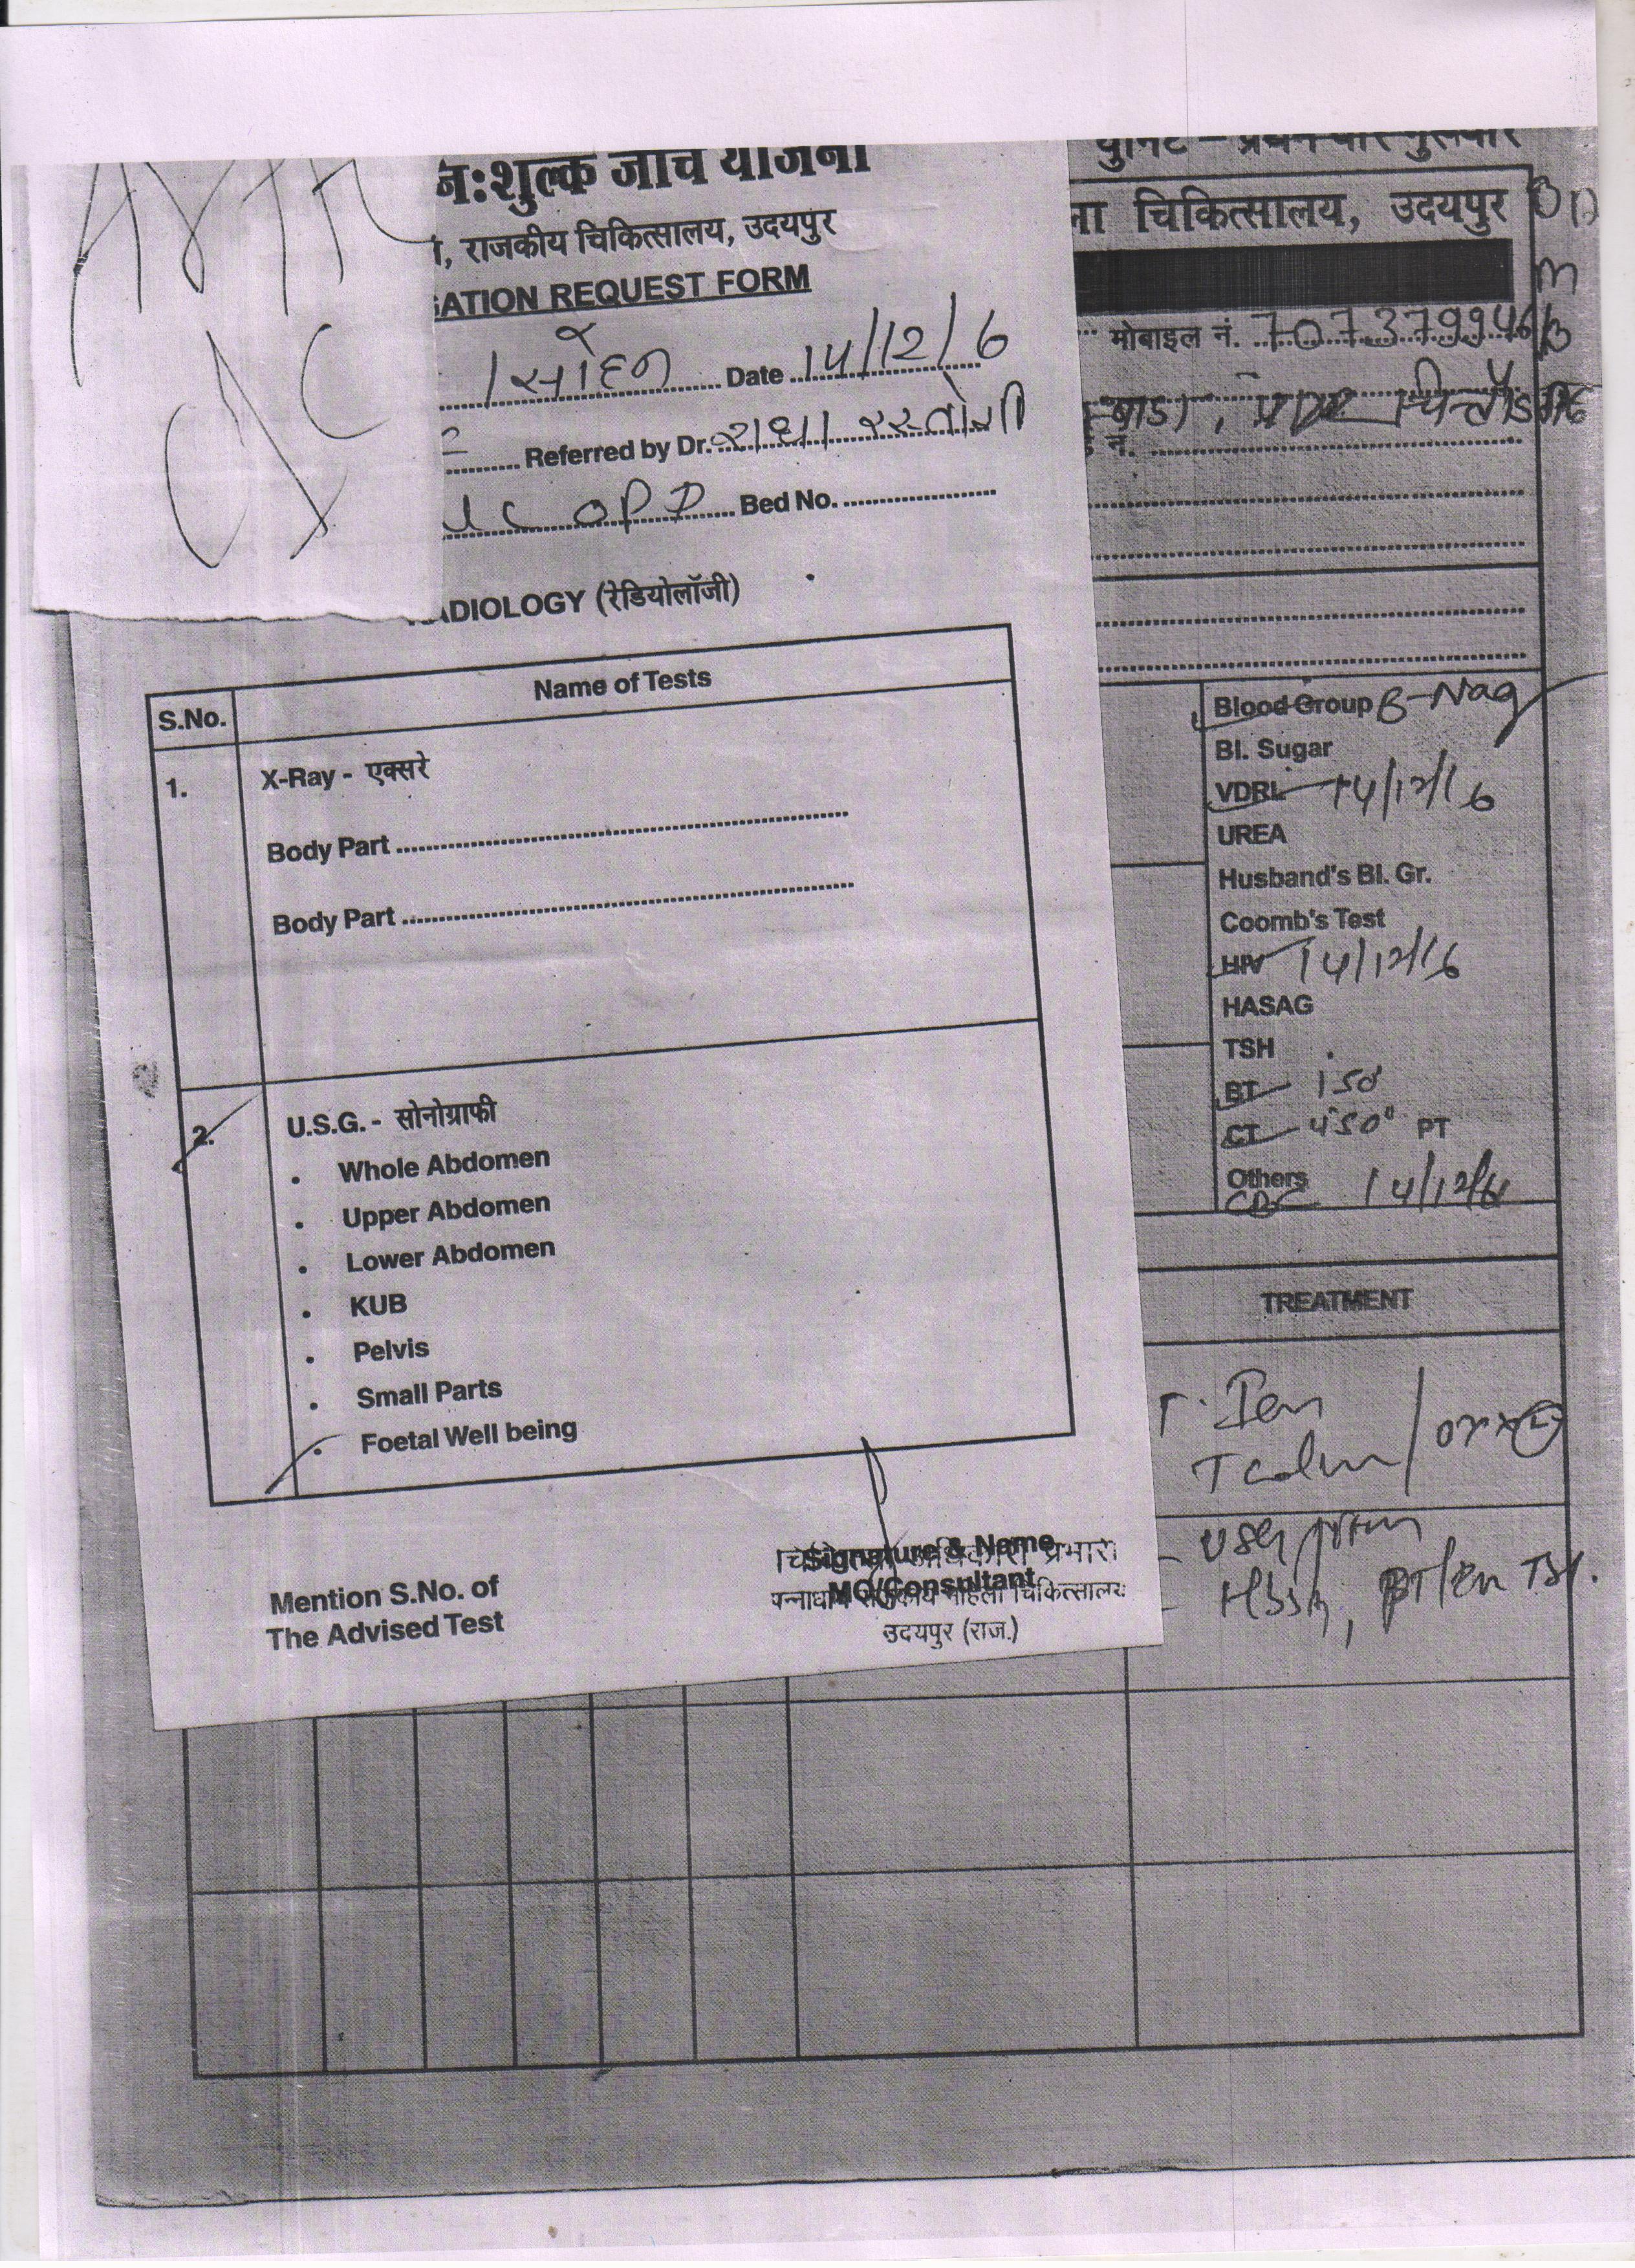 न:शुल्क जांच योजना
, राजकीय चिकित्सालय, उदयपुर
GATION REQUEST FORM
/सोहन Date 14/12/6
Referred by Dr. राधा रस्तोगी
OPD Bed No.
ADIOLOGY (रेडियोलॉजी)
S.No. Name of Tests
1. X-Ray - एक्सरे
Body Part
Body Part
2. U.S.G. - सोनोग्राफी
• Whole Abdomen
• Upper Abdomen
• Lower Abdomen
• KUB
• Pelvis
• Small Parts
• Foetal Well being
Mention S.No. of
The Advised Test
Signature & Name
MO/Consultant
प्रभारी
पन्नाधाय राजकीय महिला चिकित्सालय
उदयपुर (राज.)
युनिट - प्रथम वार गुरुवार
ला चिकित्सालय, उदयपुर
मोबाइल नं.
नं.
Blood Group B-Nag
Bl. Sugar
VDRL 14/12/16
UREA
Husband's Bl. Gr.
Coomb's Test
HIV 14/12/16
HASAG
TSH
BT 150
CT 450 PT
Others
CBC 14/12/16
TREATMENT